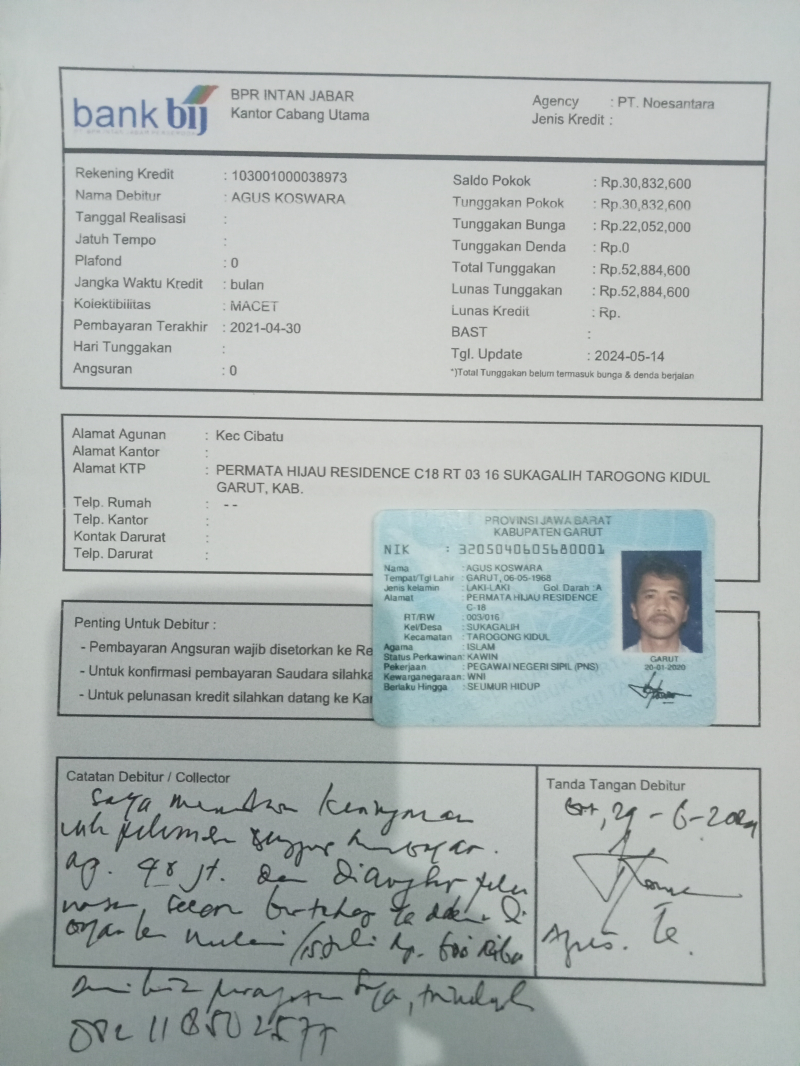 bank bij
BPR INTAN JABAR
Kantor Cabang Utama
Agency : PT. Noesantara
Jenis Kredit :
Rekening Kredit : 103001000038973
Nama Debitur : AGUS KOSWARA
Tanggal Realisasi :
Jatuh Tempo :
Plafond : 0
Jangka Waktu Kredit : bulan
Kolektibilitas : MACET
Pembayaran Terakhir : 2021-04-30
Hari Tunggakan :
Angsuran : 0
Saldo Pokok : Rp.30,832,600
Tunggakan Pokok : Rp.30,832,600
Tunggakan Bunga : Rp.22,052,000
Tunggakan Denda : Rp.0
Total Tunggakan : Rp.52,884,600
Lunas Tunggakan : Rp.52,884,600
Lunas Kredit : Rp.
BAST :
Tgl. Update : 2024-05-14
*)Total Tunggakan belum termasuk bunga & denda berjalan
Alamat Agunan : Kec Cibatu
Alamat Kantor :
Alamat KTP : PERMATA HIJAU RESIDENCE C18 RT 03 16 SUKAGALIH TAROGONG KIDUL
GARUT, KAB.
Telp. Rumah : --
Telp. Kantor :
Kontak Darurat :
Telp. Darurat :
PROVINSI JAWA BARAT
KABUPATEN GARUT
NIK : 3205040605680001
Nama : AGUS KOSWARA
Tempat/Tgl Lahir : GARUT, 06-05-1968
Jenis kelamin : LAKI-LAKI Gol. Darah : A
Alamat : PERMATA HIJAU RESIDENCE
C-18
RT/RW : 003/016
Kel/Desa : SUKAGALIH
Kecamatan : TAROGONG KIDUL
Agama : ISLAM
Status Perkawinan: KAWIN
Pekerjaan : PEGAWAI NEGERI SIPIL (PNS)
Kewarganegaraan: WNI
Berlaku Hingga : SEUMUR HIDUP
GARUT
20-01-2020
Penting Untuk Debitur :
- Pembayaran Angsuran wajib disetorkan ke Re
- Untuk konfirmasi pembayaran Saudara silahka
- Untuk pelunasan kredit silahkan datang ke Kan
Catatan Debitur / Collector
Saya
jt. dan
secara bertahap
Saya,
Tanda Tangan Debitur
29 - 6 - 2024
Agus.